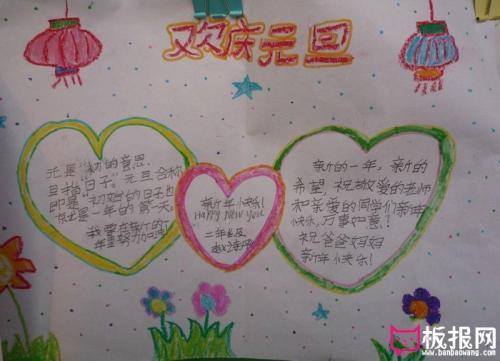 欢庆元旦
元是"初"的意思,
旦指"日子"。元旦合称
即是"初始的日子也
就是一年的第一天。
我要在新的一
年里努力加油
新年快乐!
Happy New year
二年七班
新的一年,新的
希望,祝敬爱的老师
和亲爱的同学们新年
快乐,万事如意!
祝爸爸妈妈
新年快乐!
板报网
www.banbaowang.com